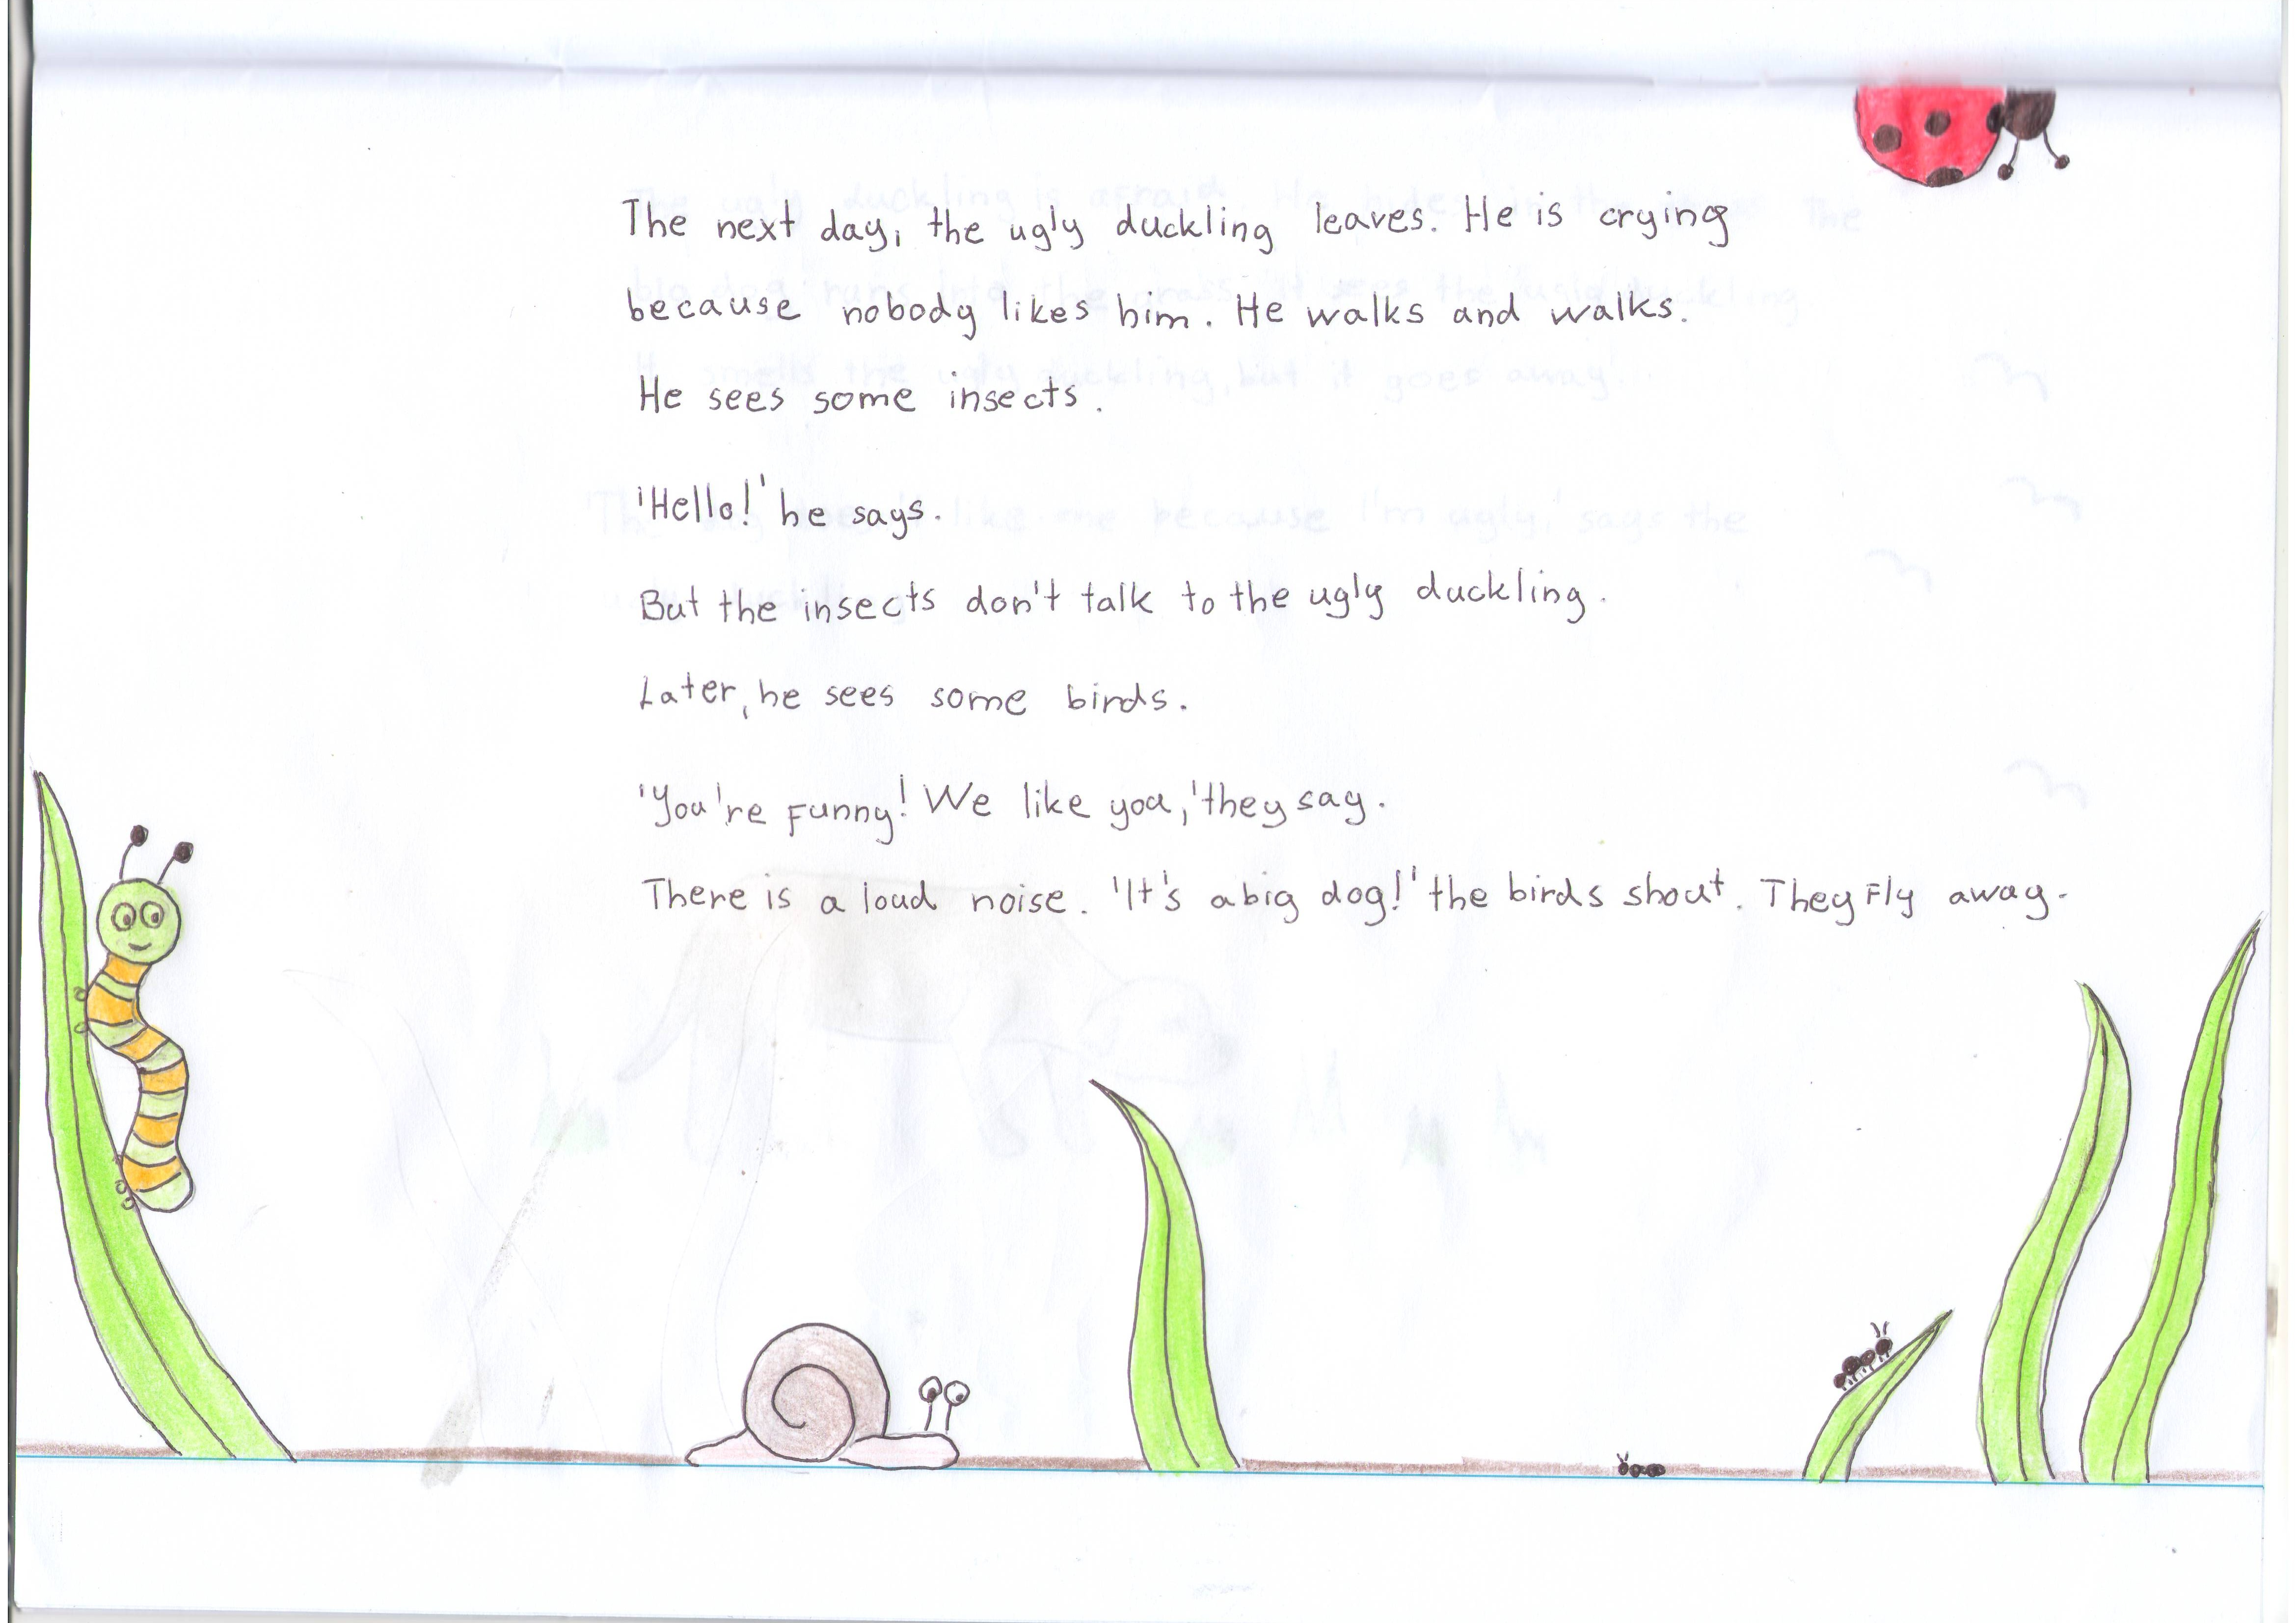 The next day, the ugly duckling leaves. He is crying
because nobody likes him. He walks and walks.
He sees some insects.
'Hello!' he says.
But the insects don't talk to the ugly duckling.
Later, he sees some birds.
'You're funny! We like you,' they say.
There is a loud noise. 'It's a big dog!' the birds shout. They fly away.